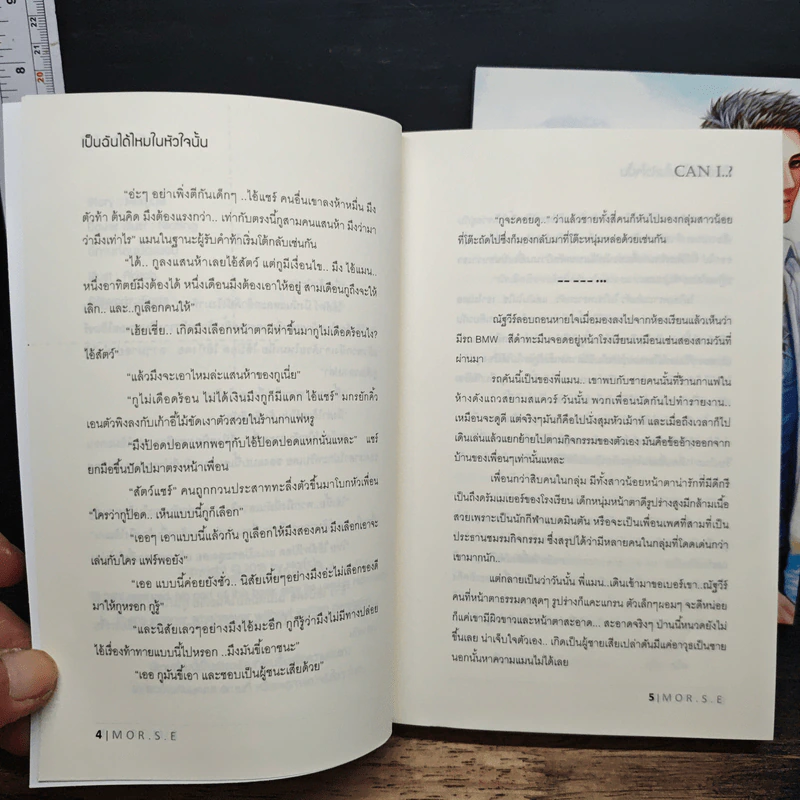 เป็นฉันได้ไหมในหัวใจนั้น
"อ่ะๆ อย่าเพิ่งตีกันเด็กๆ ..ไอ้แชร์ คนอื่นเขาลงห้าหมื่น มึง
ตัวท้า ต้นคิด มึงต้องแรงกว่า.. เท่ากับตรงนี้กูสามคนแสนห้า มึงว่ามา
ว่ามึงเท่าไร" แมนในฐานะผู้รับคำท้าเริ่มโต้กลับเช่นกัน
"ได้.. กูลงแสนห้าเลยไอ้สัตว์ แต่กูมีเงื่อนไข.. มึง ไอ้แมน..
หนึ่งอาทิตย์มึงต้องได้ หนึ่งเดือนมึงต้องเอาให้อยู่ สามเดือนกูถึงจะให้
เลิก.. และ..กูเลือกคนให้"
"เฮ้ยเชี่ย.. เกิดมึงเลือกหน้าตาผีห่าขึ้นมากูไม่เดือดร้อนไง?
ไอ้สัตว์"
"แล้วมึงจะเอาไหมล่ะแสนห้าของกูเนี่ย"
"กูไม่เดือดร้อน ไม่ได้เงินมึงกูก็มีแดก ไอ้แชร์" มกรยักคิ้ว
เอนตัวพิงลงกับเก้าอี้ไม้ขัดเงาตัวสวยในร้านกาแฟหรู
"มึงป๊อดปอดแหกพอๆกับไอ้ป๊อดปอดแหกนั่นแหละ" แชร์
ยกมือขึ้นปัดไปมาตรงหน้าเพื่อน
"สัตว์แชร์" คนถูกกวนประสาททะลึ่งตัวขึ้นมาโบกหัวเพื่อน
"ใครว่ากูป๊อด.. เห็นแบบนี้กูก็เลือก"
"เออๆ เอาแบบนี้แล้วกัน กูเลือกให้มึงสองคน มึงเลือกเอาจะ
เล่นกับใคร แฟร์พอยัง"
"เออ แบบนี้ค่อยยังชั่ว.. นิสัยเหี้ยๆอย่างมึงอ่ะไม่เลือกของดี
มาให้กูหรอก กูรู้"
"และนิสัยเลวๆอย่างมึงไอ้มะอึก กูก็รู้ว่ามึงไม่มีทางปล่อย
ไอ้เรื่องท้าทายแบบนี้ไปหรอก ..มึงมันขี้เอาชนะ"
"เออ กูมันขี้เอา และชอบเป็นผู้ชนะเสียด้วย"
4 | M O R . S . E
CAN I..?
"กูจะคอยดู.." ว่าแล้วชายทั้งสี่คนก็หันไปมองกลุ่มสาวน้อย
ที่โต๊ะถัดไปซึ่งก็มองกลับมาที่โต๊ะหนุ่มหล่อด้วยเช่นกัน
-- --- ...
ณัฐวีร์ลอบถอนหายใจเมื่อมองลงไปจากห้องเรียนแล้วเห็นว่า
มีรถ BMW สีดำทะมึนจอดอยู่หน้าโรงเรียนเหมือนเช่นสองสามวันที่
ผ่านมา
รถคันนี้เป็นของพี่แมน.. เขาพบกับชายคนนั้นที่ร้านกาแฟใน
ห้างดังแถวสยามสแควร์ วันนั้น พวกเพื่อนนัดกันไปทำรายงาน..
เหมือนจะดูดี แต่จริงๆมันก็คือไปนั่งสุมหัวเม้าท์ และเมื่อถึงเวลาก็ไป
เดินเล่นแล้วแยกย้ายไปตามกิจกรรมของตัวเอง มันคือข้ออ้างออกจาก
บ้านของเพื่อนๆเท่านั้นแหละ
เพื่อนกว่าสิบคนในกลุ่ม มีทั้งสาวน้อยหน้าตาน่ารักที่มีดีกรี
เป็นถึงดรัมเมเยอร์ของโรงเรียน เด็กหนุ่มหน้าตาดีรูปร่างสูงมีกล้ามเนื้อ
สวยเพราะเป็นนักกีฬาแบดมินตัน หรือจะเป็นเพื่อนเพศที่สามที่เป็น
ประธานชมรมกิจกรรม ซึ่งสรุปได้ว่ามีหลายคนในกลุ่มที่โดดเด่นกว่า
เขามากนัก..
แต่กลายเป็นว่าวันนั้น พี่แมน..เดินเข้ามาขอเบอร์เขา..ณัฐวีร์
คนที่หน้าตาธรรมดาสุดๆ รูปร่างก็แคะแกรน ตัวเล็กๆผอมๆ จะดีหน่อย
ก็แค่เขามีผิวขาวและหน้าตาสะอาด... สะอาดจริงๆ ป่านนี้หนวดยังไม่
ขึ้นเลย น่าเจ็บใจตัวเอง.. เกิดเป็นผู้ชายเสียเปล่าดันมีแค่อาวุธเป็นชาย
นอกนั้นหาความแมนไม่ได้เลย
5 | M O R . S . E